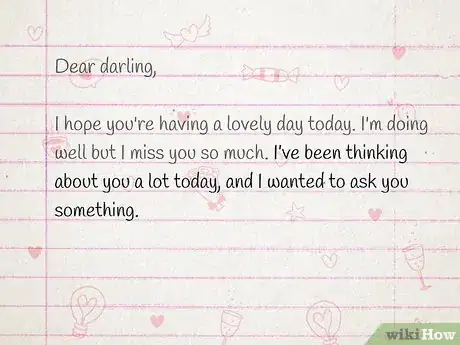 Dear darling,
I hope you're having a lovely day today. I'm doing
well but I miss you so much. I've been thinking
about you a lot today, and I wanted to ask you
something.
wikiHow